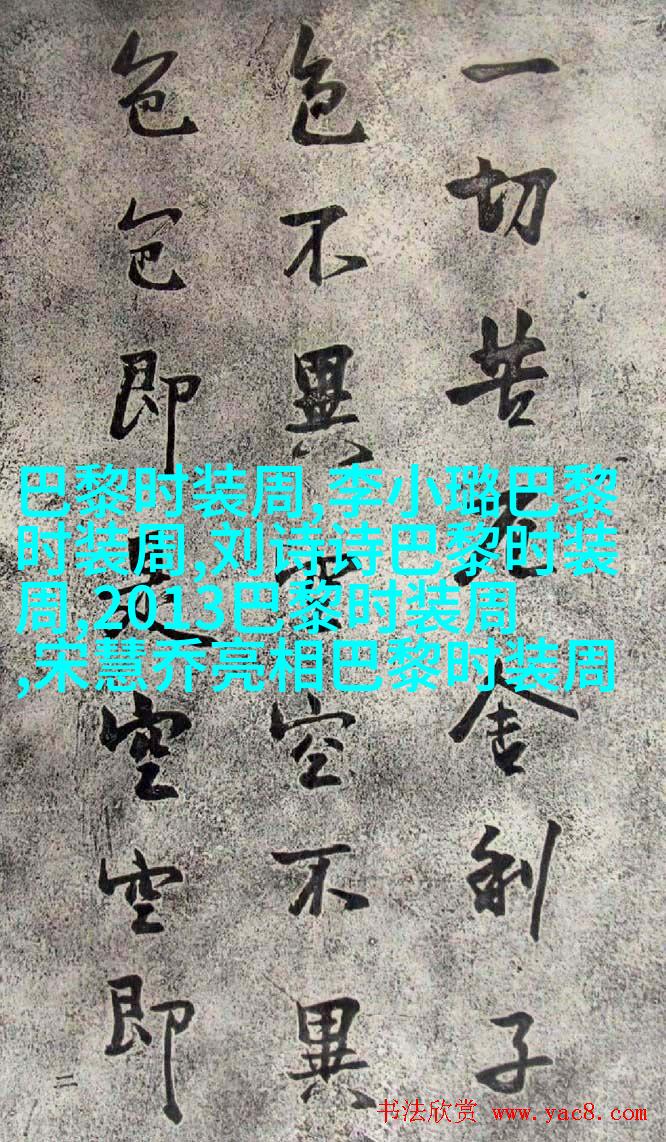 一切苦舍利子
色不異空不異
色色即是空空即
二
巴黎时装周,李小璐巴黎
时装周,刘诗诗巴黎时装
周,2013巴黎时装周
,宋慧乔亮相巴黎时装周
书法欣赏 www.yac8.com